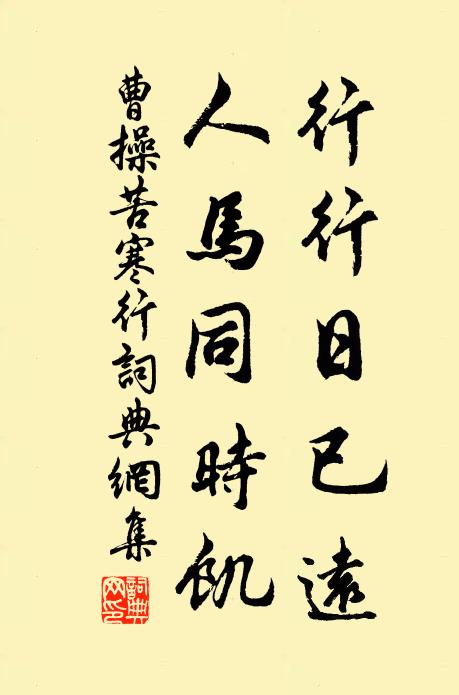 行行日已遠
人馬同時飢
曹操苦寒行詞典網集
詞典網印